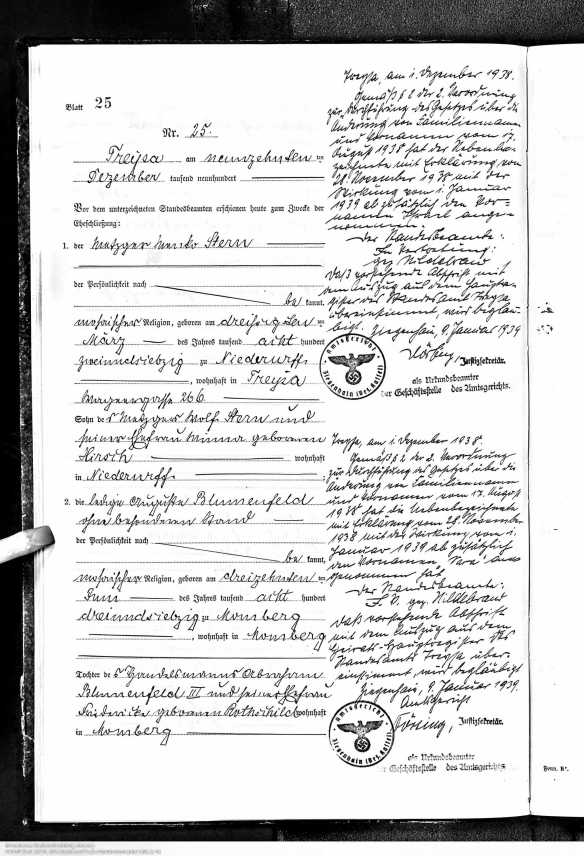 Blatt 25
Nr. 25.
Treysa am neunzehnten
Dezember tausend neunhundert
Vor dem unterzeichneten Standesbeamten erschienen heute zum Zwecke der
Eheschließung:
1. der Metzger Stern
der Persönlichkeit nach
be kannt,
mosaischer Religion, geboren am dreißigsten
März des Jahres tausend acht hundert
zweiundsiebzig zu Niederurff
, wohnhaft in Treysa
Wagnergasse 266
Sohn des Metzgers Wolf Stern und
seiner Ehefrau Minna geborenen
Hirsch wohnhaft
in Niederurff
2. die ledige Auguste Blumenfeld
ohne besonderen Stand
der Persönlichkeit nach
be kannt,
mosaischer Religion, geboren am dreizehnten
Juni des Jahres tausend acht hundert
dreiundsiebzig zu Momberg
, wohnhaft in Momberg
Tochter des Handelsmanns Abraham
Blumenfeld III und seiner Ehefrau
Friederike geborenen Rothschild wohnhaft
in Momberg
Treysa, am 1. Dezember 1938.
Gemäß § 2 der 2. Verordnung
zur Durchführung des Gesetzes über die
Änderung von Familiennamen
und Vornamen vom 17.
August 1938 hat der Nebenbe-
zeichnete mit Erklärung vom
28. November 1938 mit der
Wirkung vom 1. Januar
1939 ab zusätzlich den Vor-
namen Israel ange-
nommen.
Der Standesbeamte:
In Vertretung:
gez. Hildebrand
Daß vorstehende Abschrift mit
dem Auszug aus dem Hauptre-
gister des Standesamts Treysa
übereinstimmt, wird beglau-
bigt. Ziegenhain, 9. Januar 1939
Justizsekretär.
als Urkundsbeamter
der Geschäftsstelle des Amtsgerichts.
Amtsgericht
Ziegenhain (Bez. Kassel)
Treysa, am 1. Dezember 1938.
Gemäß § 2 der 2. Verordnung
zur Durchführung des Gesetzes über die
Änderung von Familiennamen
und Vornamen vom 17. August
1938 hat die Nebenbezeichnete
mit Erklärung vom 28. November
1938 mit der Wirkung vom 1.
Januar 1939 ab zusätzlich
den Vornamen "Sara" an-
genommen.
Der Standesbeamte:
I. V. gez. Hildebrand
Daß vorstehende Abschrift
mit dem Auszug aus dem
Heirats-Hauptregister des
Standesamts Treysa über-
einstimmt, wird beglaubigt
Ziegenhain, 9. Januar 1939.
Amtsgericht
Justizsekretär.
als Urkundsbeamter
der Geschäftsstelle des Amtsgerichts
Amtsgericht
Ziegenhain (Bez. Kassel)
Form. B¹.